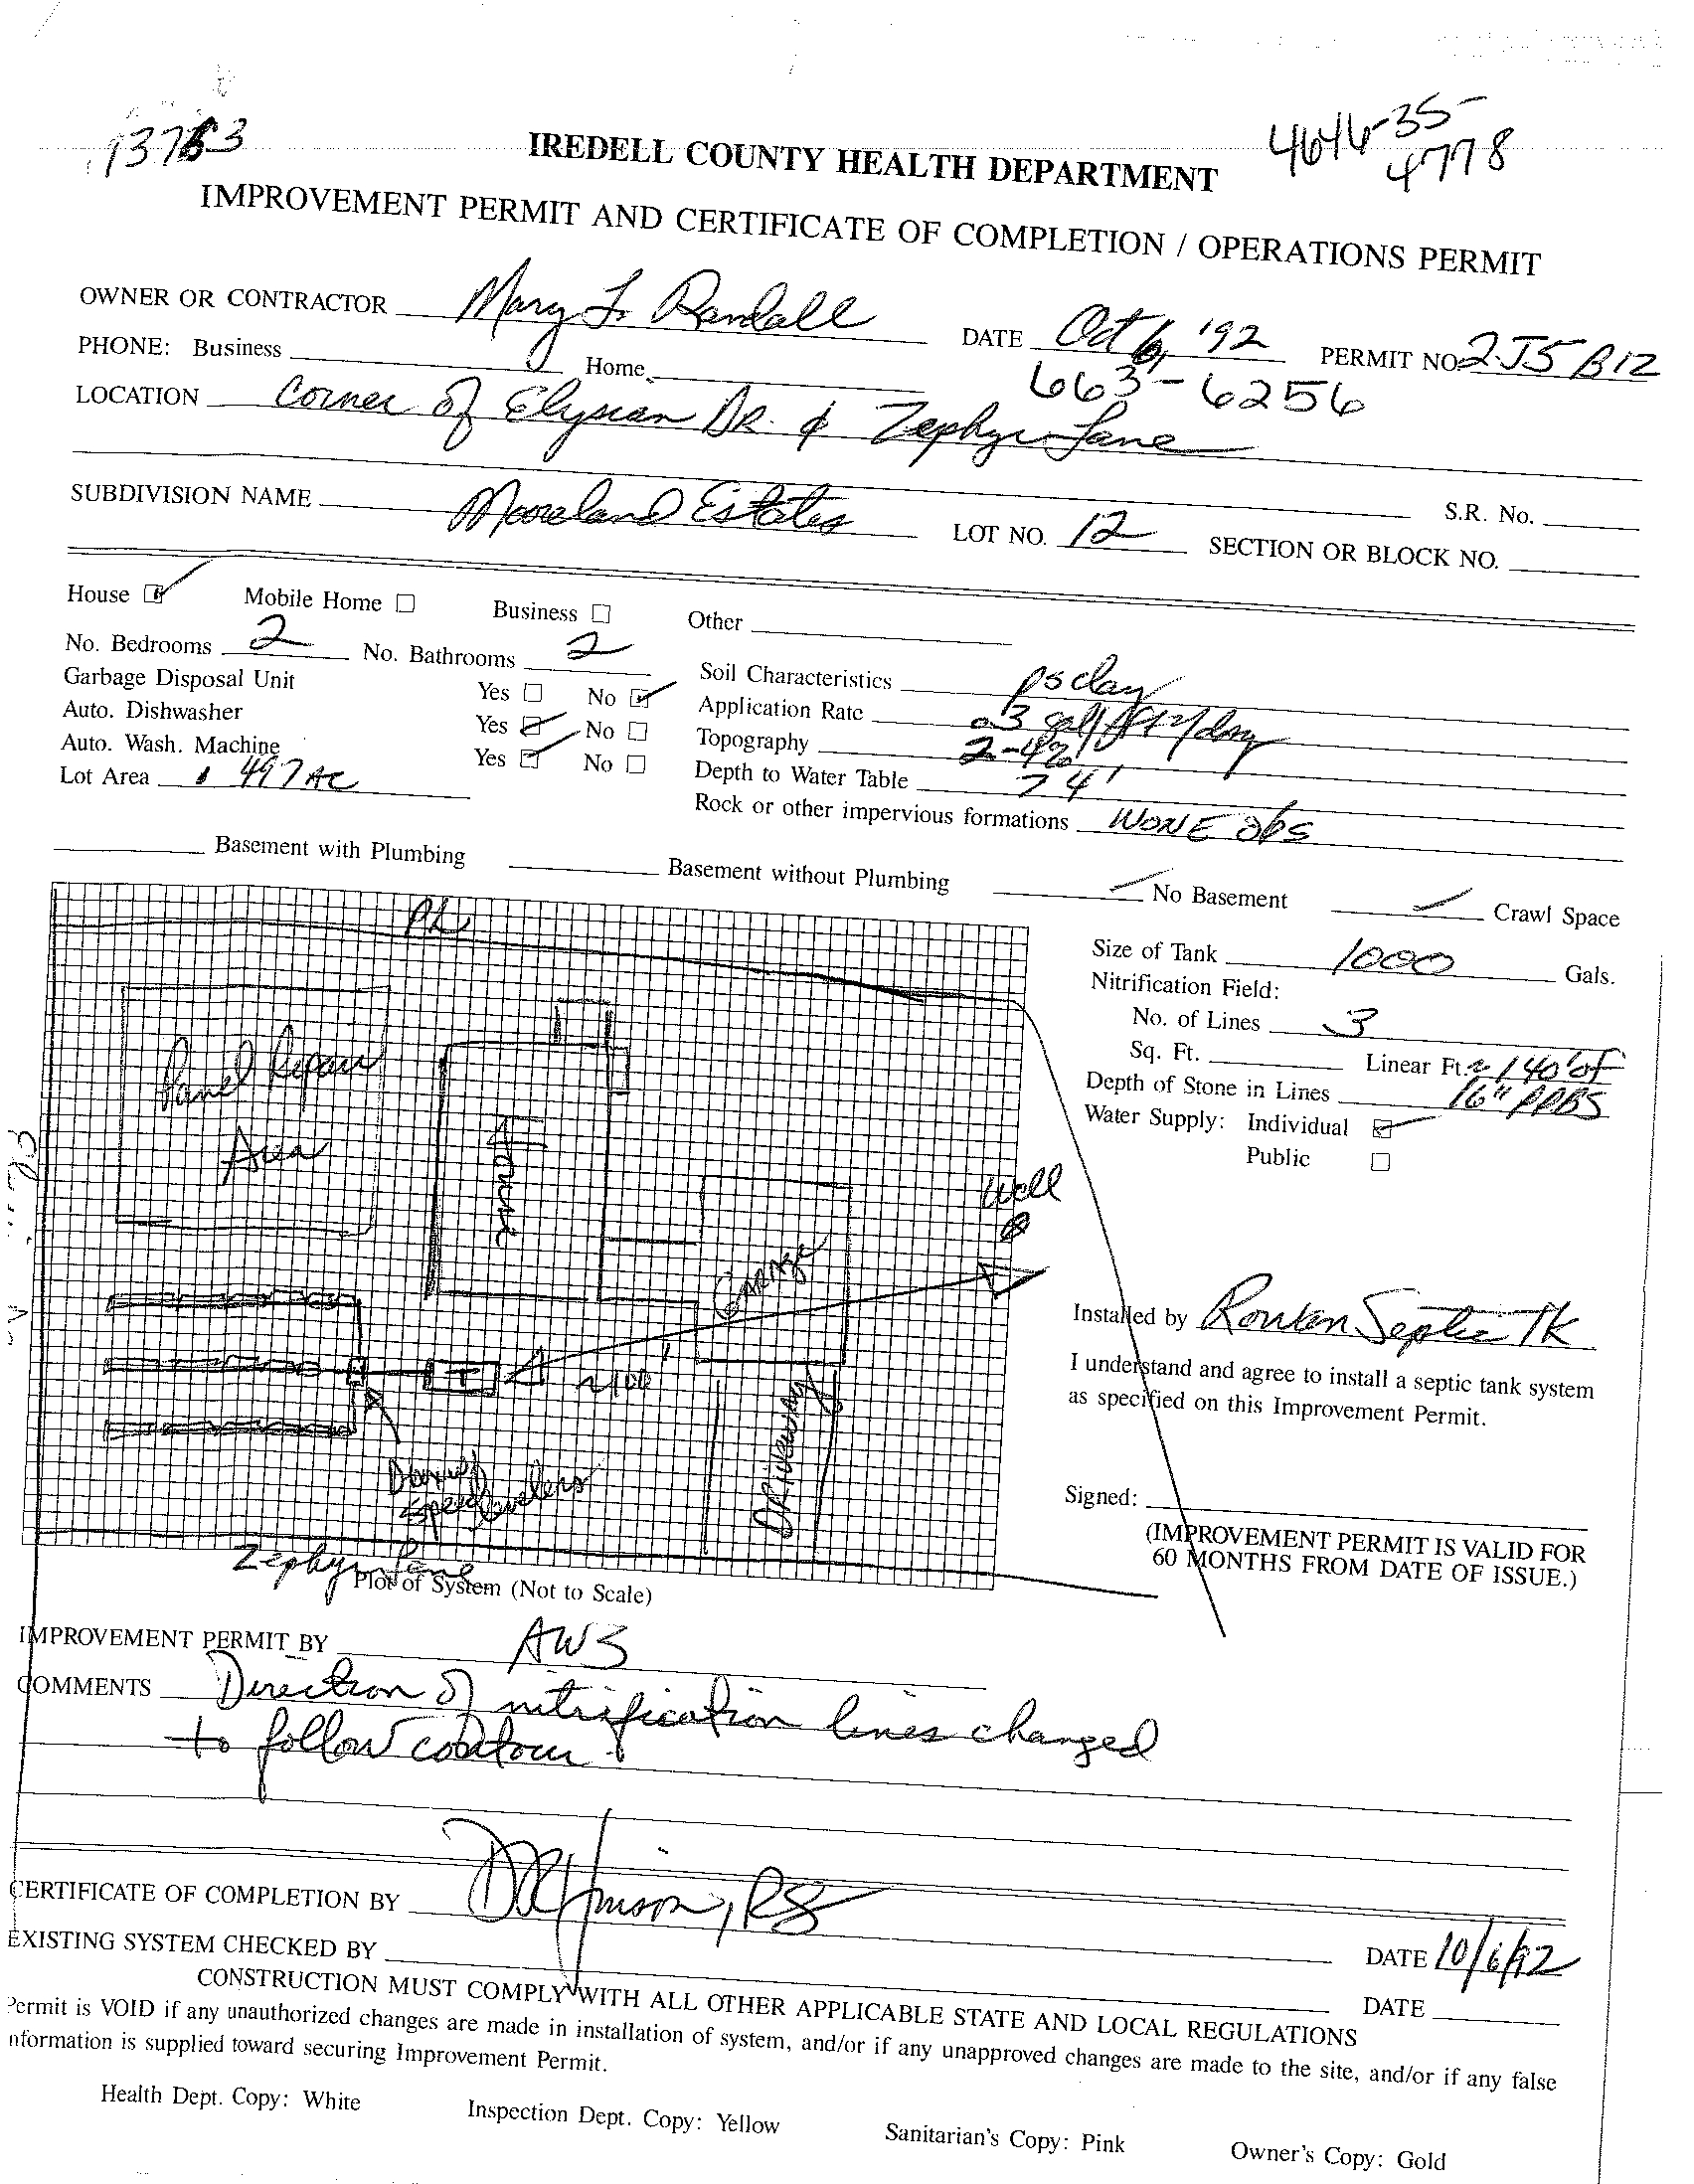 13763
4646-35-
4778
IREDELL COUNTY HEALTH DEPARTMENT
IMPROVEMENT PERMIT AND CERTIFICATE OF COMPLETION / OPERATIONS PERMIT
OWNER OR CONTRACTOR Mary L. Randall DATE Oct 6, '92 PERMIT NO. 2J5 B12
PHONE: Business Home 663-6256
LOCATION Corner of Elysian DR. & Zephyr Lane
SUBDIVISION NAME Mooreland Estates LOT NO. 12 SECTION OR BLOCK NO. S.R. No.
House Mobile Home Business Other
No. Bedrooms 2 No. Bathrooms 2
Garbage Disposal Unit Yes No
Auto. Dishwasher Yes No
Auto. Wash. Machine Yes No
Lot Area .497 AC
Soil Characteristics PS clay
Application Rate .3 gal/ft2/day
Topography 2-4%
Depth to Water Table > 4'
Rock or other impervious formations NONE obs
Basement with Plumbing Basement without Plumbing No Basement Crawl Space
PL
Panel Repair
Area
House
Garage
Well
~100'
Driveway
Speed Levelers
Zephyr Lane
Plot of System (Not to Scale)
Size of Tank 1000 Gals.
Nitrification Field:
No. of Lines 3
Sq. Ft. Linear Ft. ~ 140' of
Depth of Stone in Lines 16" PPBS
Water Supply: Individual
Public
Installed by Rowan Septic Tk
I understand and agree to install a septic tank system
as specified on this Improvement Permit.
Signed:
(IMPROVEMENT PERMIT IS VALID FOR
60 MONTHS FROM DATE OF ISSUE.)
IMPROVEMENT PERMIT BY AWS
COMMENTS Direction of nitrification lines changed
to follow contour.
CERTIFICATE OF COMPLETION BY RS DATE 10/6/92
EXISTING SYSTEM CHECKED BY DATE
CONSTRUCTION MUST COMPLY WITH ALL OTHER APPLICABLE STATE AND LOCAL REGULATIONS
Permit is VOID if any unauthorized changes are made in installation of system, and/or if any unapproved changes are made to the site, and/or if any false
information is supplied toward securing Improvement Permit.
Health Dept. Copy: White Inspection Dept. Copy: Yellow Sanitarian's Copy: Pink Owner's Copy: Gold